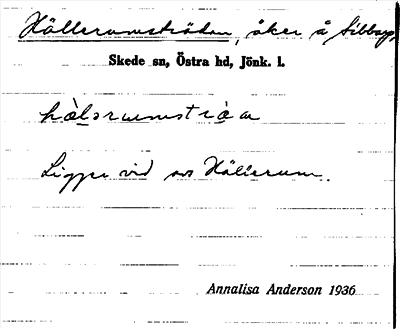 Hällerumsträdan, åker å Sibbarp,
Skede sn, Östra hd, Jönk. l.
hàlərumstràa
Ligger vid sos Hällerum.
Annalisa Anderson 1936